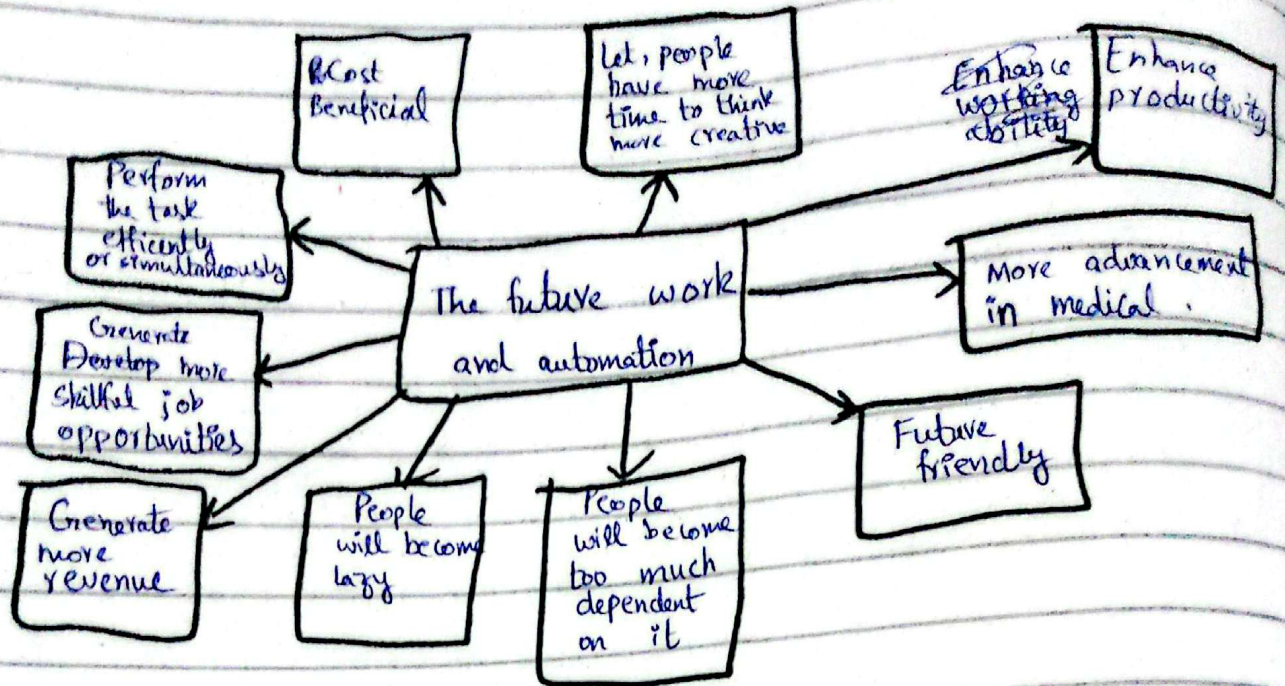 Cost
Beneficial
Let, people
have more
time to think
more creative
Enhance
working
ability
Enhance
productivity
Perform
the task
efficently
or simultaneously
The future work
and automation
More advancement
in medical.
Generate
Develop more
skillful job
opportunities
Future
friendly
Generate
more
revenue
People
will become
lazy
People
will become
too much
dependent
on it